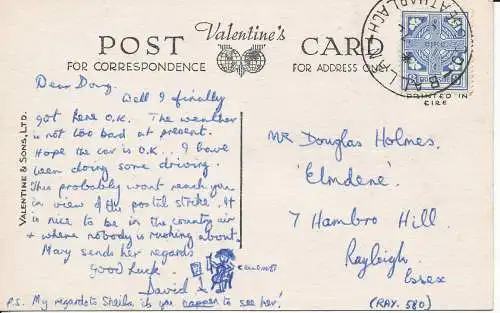 Valentine's
POST CARD
FOR CORRESPONDENCE
FOR ADDRESS ONLY
PRINTED IN
EIRE
VALENTINE & SONS, LTD.
Dear Doug,
Well I finally
got here O.K. The weather
is not too bad at present.
Hope the car is O.K.. I have
been doing some driving.
This probably wont reach you
in view of the postal strike. It
is nice to be in the country air
+ where nobody is rushing about.
Mary sends her regards
Good Luck.
David
P.S. My regards to Sheila if you happen to see her!
Mr Douglas Holmes,
'Elmdene',
7 Hambro Hill,
Rayleigh,
Essex
(RAY. 580)